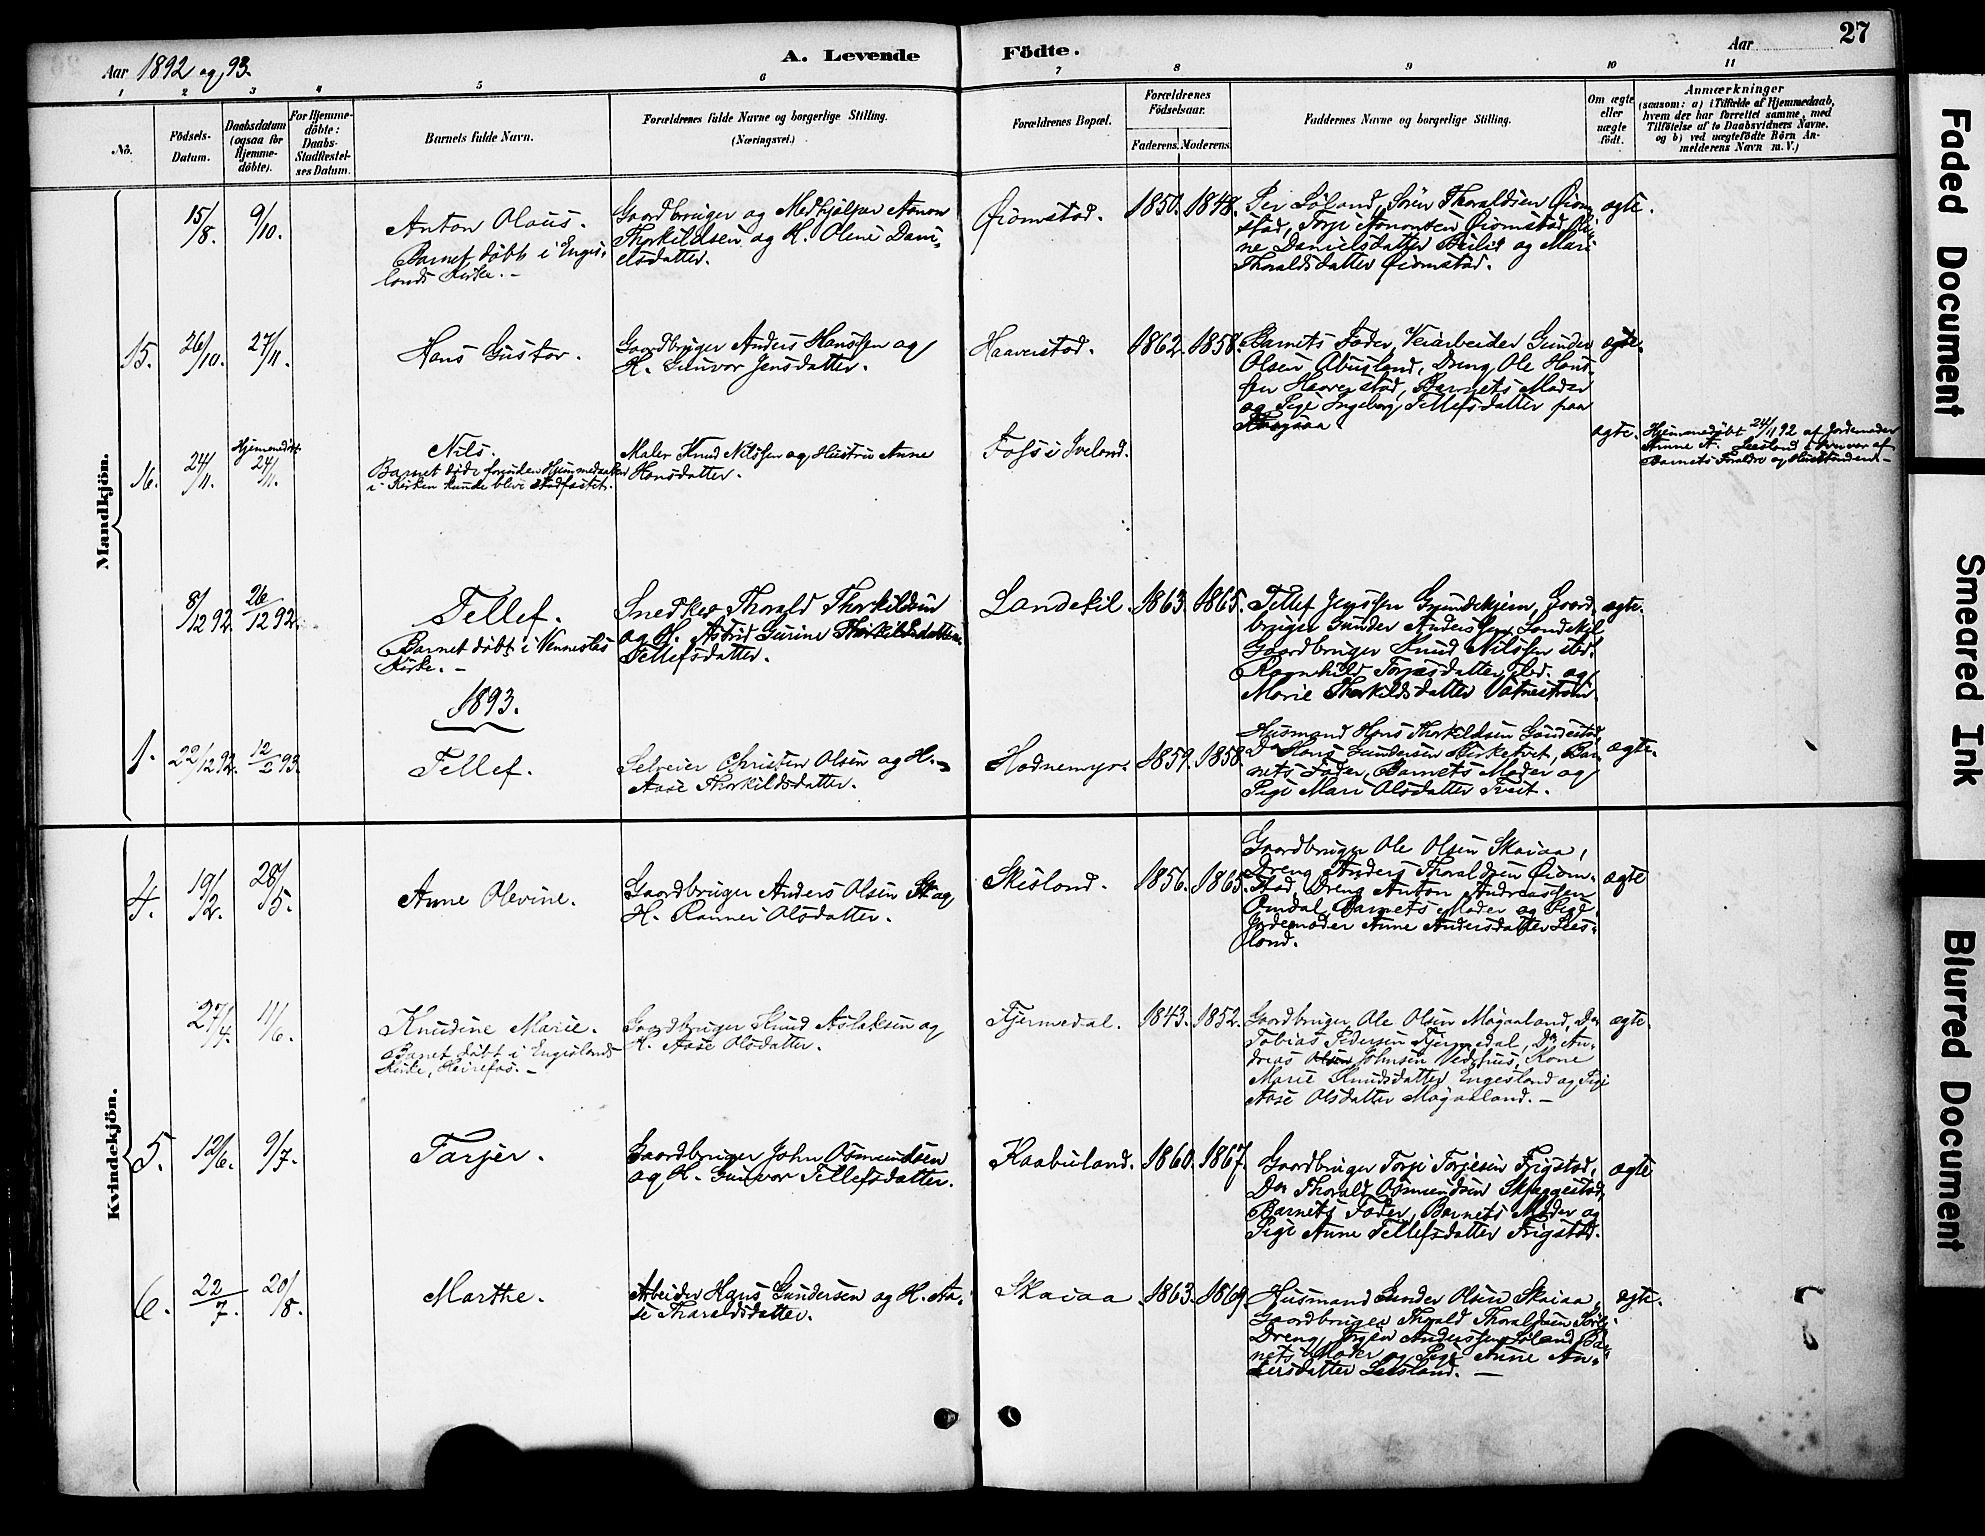 27
Aar 1892 og 93.
A. Levende Födte.
Aar
1 2 3 4 5 6 7 8 9 10 11
No.
Födsels-Datum.
Daabsdatum (ogsaa for Hjemme-döbte).
For Hjemme-döbte: Daabs-Stadfæstel-ses Datum.
Barnets fulde Navn.
Forældrenes fulde Navne og borgerlige Stilling.
(Næringsvei.)
Forældrenes Bopæl.
Forældrenes Födselsaar.
Faderens. Moderens.
Faddernes Navne og borgerlige Stilling.
Om ægte eller uægte födt.
Anmærkninger
(saasom: a) i Tilfælde af Hjemmedaab,
hvem der har forrettet samme, med
Tilföielse af to Daabsvidners Navne,
og b) ved uægtefödte Börn An-
melderens Navn m. V.)
Mandkjön.
15/8. 9/10.
Anton Olaus.
Barnet døbt i Engis-
lands Kirke. -
Gaardbruger og Medhjælper Aanon
Thorkildsen og H. Oline Dani-
elsdatter.
Øiomstad. 1850. 1848.
Per Løland, Sören Thoraldsen Øiom-
stad, Torje Aanonsen Øiomstad,
ne Danielsdatter og Mari
Thoraldsdatter Øiomstad.
ægte.
15. 26/10. 27/11.
Hans Gustav.
Gaardbruger Anders Hanssen og
H. Gunvor Jensdatter.
Haaverstad. 1862. 1858.
Barnets Fader, Veiarbeider Gunder
Olsen Abusland, Dreng Ole Hans-
sen Haaverstad, Barnets Moder
og Pige Ingeborg Tellefsdatter fra
ægte.
16. 24/11. Hjemmedöbt 24/11.
Nils.
Barnet døde forinden Hjemmedaaben
i Kirken kunde blive stadfæstet.
Maler Knud Nilssen og Hustru Anne
Hansdatter.
Foss i Iveland.
ægte.
Hjemmedöbt 24/11 92 af Jordemoder
Anne A. Leesland i Nærvær af
Barnets Forældre og
8/12 92. 26/12 92.
Tellef.
Barnet døbt i Vennesla
Kirke. -
Snedker Thorald Thorkildsen
og H. Astrid Gurine Thorkildsdatter
Tellefsdatter.
Landekil. 1863. 1865.
Tellef Jenssen Grundekjern, Gaard-
bruger Gunder Anderssen Landekil,
Gaardbruger Knud Nilssen ibd.
Ragnhild Torjesdatter ibd. og
Marie Thorkildsdatter Vatnestrøm.
ægte.
1893.
1. 22/12 92. 12/2 93.
Tellef.
Selveier Christen Olsen og H.
Aase Thorkildsdatter.
Hodnemyr. 1859. 1858.
Husmand Hans Thorkildsen
Do Hans Gundersen Birketveit, Bar-
nets Fader, Barnets Moder og
Pige Mari Olsdatter Tveit.
ægte.
Kvindekjön.
4. 19/2. 28/5.
Anne Olevine.
Gaardbruger Anders Olsen Sk og
H. Rannei Olsdatter.
Skisland. 1856. 1865.
Gaardbruger Ole Olsen Skaiaa,
Dreng Anders Thoraldsen Øiom-
stad, Dreng Anton Andreassen
Omdal, Barnets Moder og
Jordemoder Anne Andersdatter Lees-
land.
ægte
27/4. 11/6.
Knudine Marie.
Barnet døbt i Engislands
Kirke, Heirefos. -
Gaardbruger Knud Aslaksen og
H. Aase Olsdatter.
Fjermedal. 1843. 1852.
Gaardbruger Ole Olsen Mogaaland, Do
Tobias Pedersen Fjermedal, Do An-
dreas Olsen Johnsen Vedhus, Kone
Marie Knudsdatter Engesland og Pige
Aase Olsdatter Mogaaland. -
ægte.
5. 12/6. 9/7.
Tarjer.
Gaardbruger John Osmundsen
og H. Gunvor Tellefsdatter.
Kaabuland. 1860. 1867
Gaardbruger Torje Torjesen Frigstad,
Do Thorald Osmundsen Skjeggestad,
Barnets Fader, Barnets Moder og
Pige Anne Tellefsdatter Frigstad.
ægte
6. 22/7. 20/8.
Marthe.
Arbeider Hans Gundersen og H. Aa-
se Tharaldsdatter.
Skaiaa. 1863. 1869.
Husmand Gunder Olsen Skaiaa,
Gaardbruger Thorald Thoraldsen
Dreng, Jörgen Anderssen Løland, Bar-
nets Moder og Pige Anne An-
dersdatter Leesland. -
ægte.
Faded Document
Smeared Ink
Blurred Document